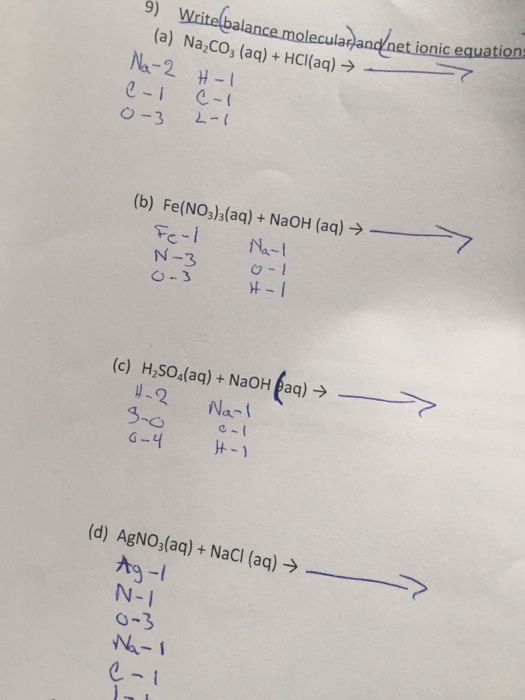 9) Write balance molecular and net ionic equation
(a) Na₂CO₃ (aq) + HCl(aq) →
Na-2 H-1
C-1 C-1
O-3 L-1
(b) Fe(NO₃)₃(aq) + NaOH (aq) →
Fe-1 Na-1
N-3 O-1
O-3 H-1
(c) H₂SO₄(aq) + NaOH (aq) →
H-2 Na-1
S-O
O-4 H-1
(d) AgNO₃(aq) + NaCl (aq) →
Ag-1
N-1
O-3
Na-1
C-1